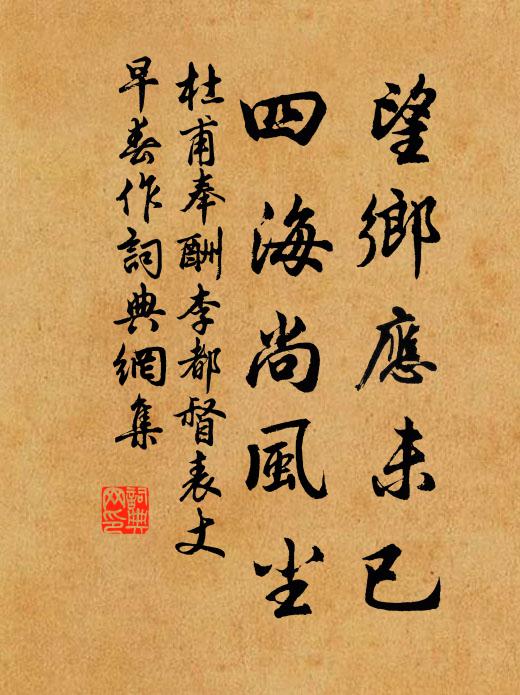 望鄉應未已
四海尚風尘
杜甫奉酬李都督表丈
早春作詞典網集
詞典
网印